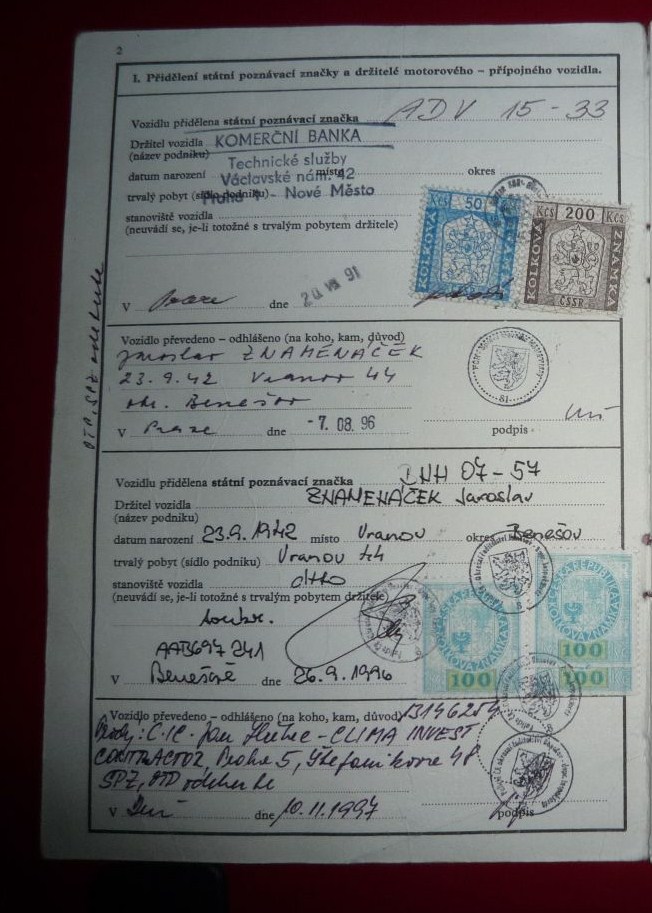 2
I. Přidělení státní poznávací značky a držitelé motorového – přípojného vozidla.
Vozidlu přidělena státní poznávací značka ADV 15-33
Držitel vozidla KOMERČNÍ BANKA
(název podniku)
Technické služby
datum narození místo okres
Václavské nám. 42
trvalý pobyt (sídlo podniku)
Praha - Nové Město
stanoviště vozidla
(neuvádí se, je-li totožné s trvalým pobytem držitele)
Kčs 50
KOLKOVÁ
Kčs 200 Kčs
KOLKOVÁ ZNÁMKA
ČSSR
V Praze dne 20 VIII 91
OTP, SPZ odebrale
Vozidlo převedeno – odhlášeno (na koho, kam, důvod)
Jaroslav ZNAMENÁČEK
23.9.42 Vranov 44
okr. Benešov
V Praze dne -7. 08. 96 podpis
81
Vozidlu přidělena státní poznávací značka BNH 07-57
Držitel vozidla ZNAMENÁČEK Jaroslav
(název podniku)
datum narození 23.9.1942 místo Vranov okres Benešov
trvalý pobyt (sídlo podniku) Vranov 44
stanoviště vozidla ditto
(neuvádí se, je-li totožné s trvalým pobytem držitele)
soukr.
AAB697241
V Benešově dne 26.9.1996
ČESKÁ REPUBLIKA
KOLKOVÁ ZNÁMKA
100
100
100
Vozidlo převedeno – odhlášeno (na koho, kam, důvod)
CLIMA INVEST
CONTRACTOR, Praha 5, Štefanikova 48
SPZ, OTP odebrale
V dne 10.11.1997 podpis